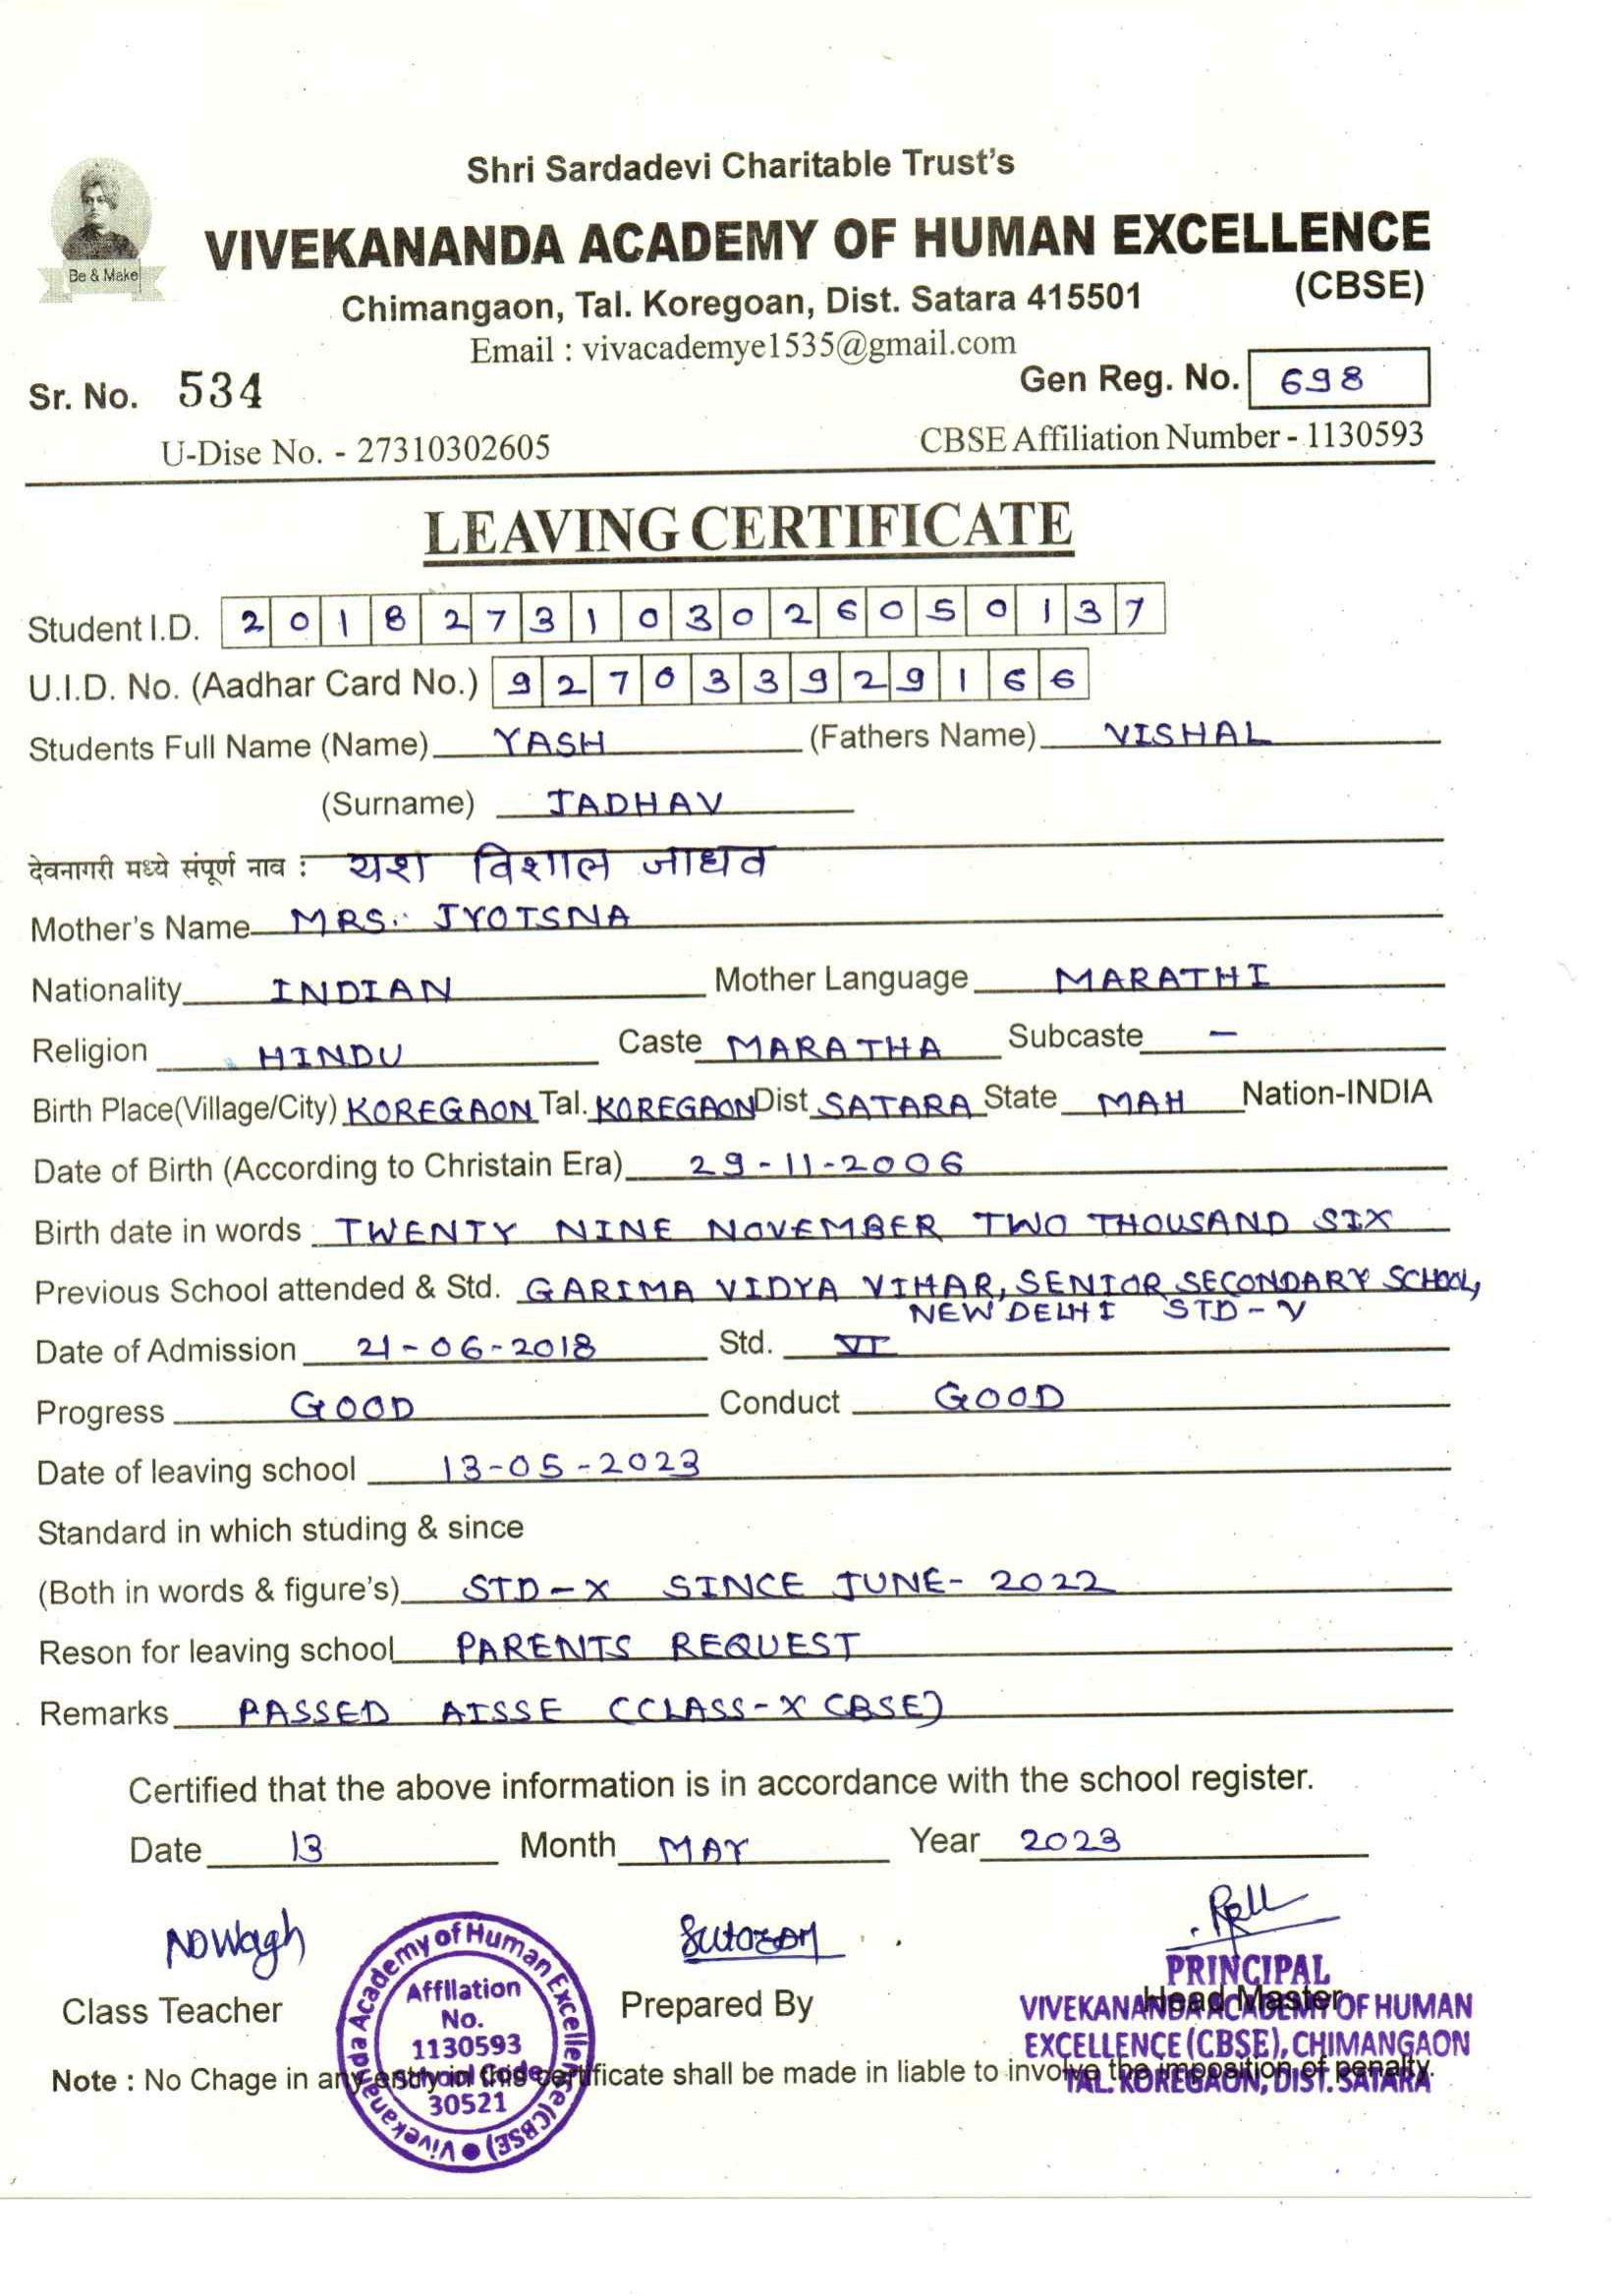 Shri Sardadevi Charitable Trust's
VIVEKANANDA ACADEMY OF HUMAN EXCELLENCE
Be & Make
(CBSE)
Chimangaon, Tal. Koregoan, Dist. Satara 415501
Email : vivacademye1535@gmail.com
Sr. No. 534 Gen Reg. No. 698
U-Dise No. - 27310302605 CBSE Affiliation Number - 1130593
LEAVING CERTIFICATE
Student I.D. 2 0 1 8 2 7 3 1 0 3 0 2 6 0 5 0 1 3 7
U.I.D. No. (Aadhar Card No.) 9 2 7 0 3 3 9 2 9 1 6 6
Students Full Name (Name) YASH (Fathers Name) VISHAL
(Surname) JADHAV
देवनागरी मध्ये संपूर्ण नाव : यश विशाल जाधव
Mother's Name MRS. JYOTSNA
Nationality INDIAN Mother Language MARATHI
Religion HINDU Caste MARATHA Subcaste —
Birth Place(Village/City) KOREGAON Tal. KOREGAON Dist SATARA State MAH Nation-INDIA
Date of Birth (According to Christain Era) 29-11-2006
Birth date in words TWENTY NINE NOVEMBER TWO THOUSAND SIX
Previous School attended & Std. GARIMA VIDYA VIHAR, SENIOR SECONDARY SCHOOL,
NEW DELHI STD-V
Date of Admission 21-06-2018 Std. VI
Progress GOOD Conduct GOOD
Date of leaving school 13-05-2023
Standard in which studing & since
(Both in words & figure's) STD-X SINCE JUNE-2022
Reson for leaving school PARENTS REQUEST
Remarks PASSED AISSE (CLASS-X CBSE)
Certified that the above information is in accordance with the school register.
Date 13 Month MAY Year 2023
Class Teacher Prepared By Head Master
PRINCIPAL
VIVEKANANDA ACADEMY OF HUMAN
EXCELLENCE (CBSE), CHIMANGAON
TAL. KOREGAON, DIST. SATARA
Vivekananda Academy of Human Excellence (CBSE)
Affiliation
No.
1130593
School Code
30521
Note : No Chage in any entry in this certificate shall be made in liable to involve the imposition of penalty.